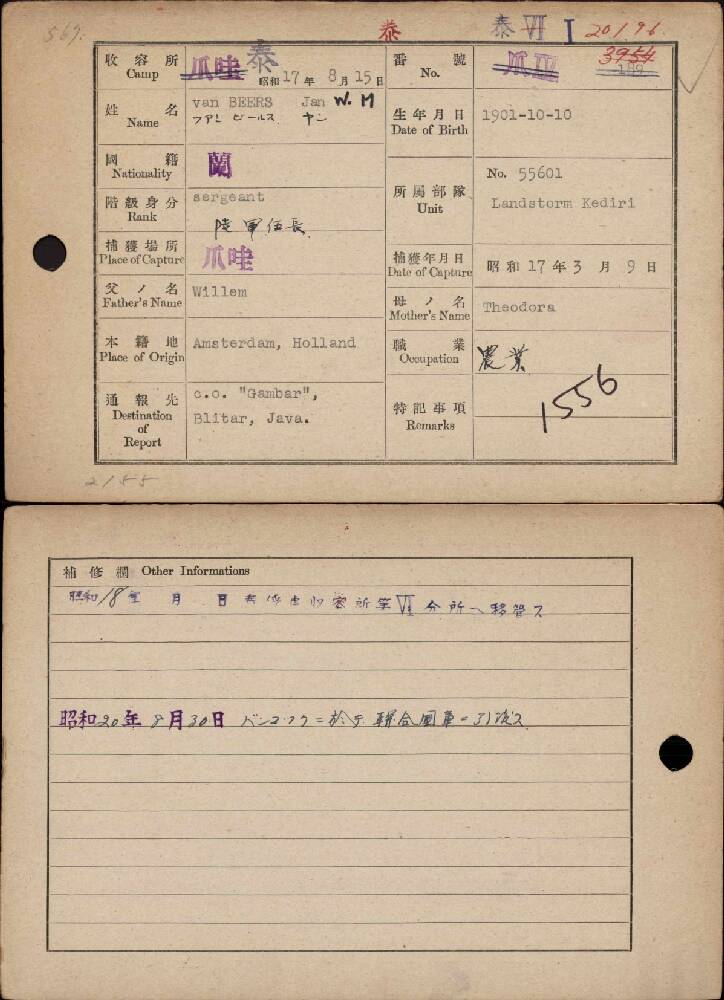 569.
泰 泰 VI I 20196
收容所 Camp 爪哇 泰 昭和17年8月15日
番號 No. 爪IV 3954
姓名 Name van BEERS Jan W. M
ファン ビールス ヤン
生年月日 Date of Birth 1901-10-10
國籍 Nationality 蘭
階級身分 Rank sergeant
陸軍伍長
所屬部隊 Unit No. 55601
Landstorm Kediri
捕獲場所 Place of Capture 爪哇
捕獲年月日 Date of Capture 昭和17年3月9日
父ノ名 Father's Name Willem
母ノ名 Mother's Name Theodora
本籍地 Place of Origin Amsterdam, Holland
職業 Occupation 農業
通報先 Destination of Report c.o. "Gambar",
Blitar, Java.
特記事項 Remarks 1556
2155
補修欄 Other Informations
昭和18年 月 日 泰俘虜收容所第VI分所ヘ移管ス
昭和20年8月30日 バンコックニ於テ聯合國軍ニ引渡ス